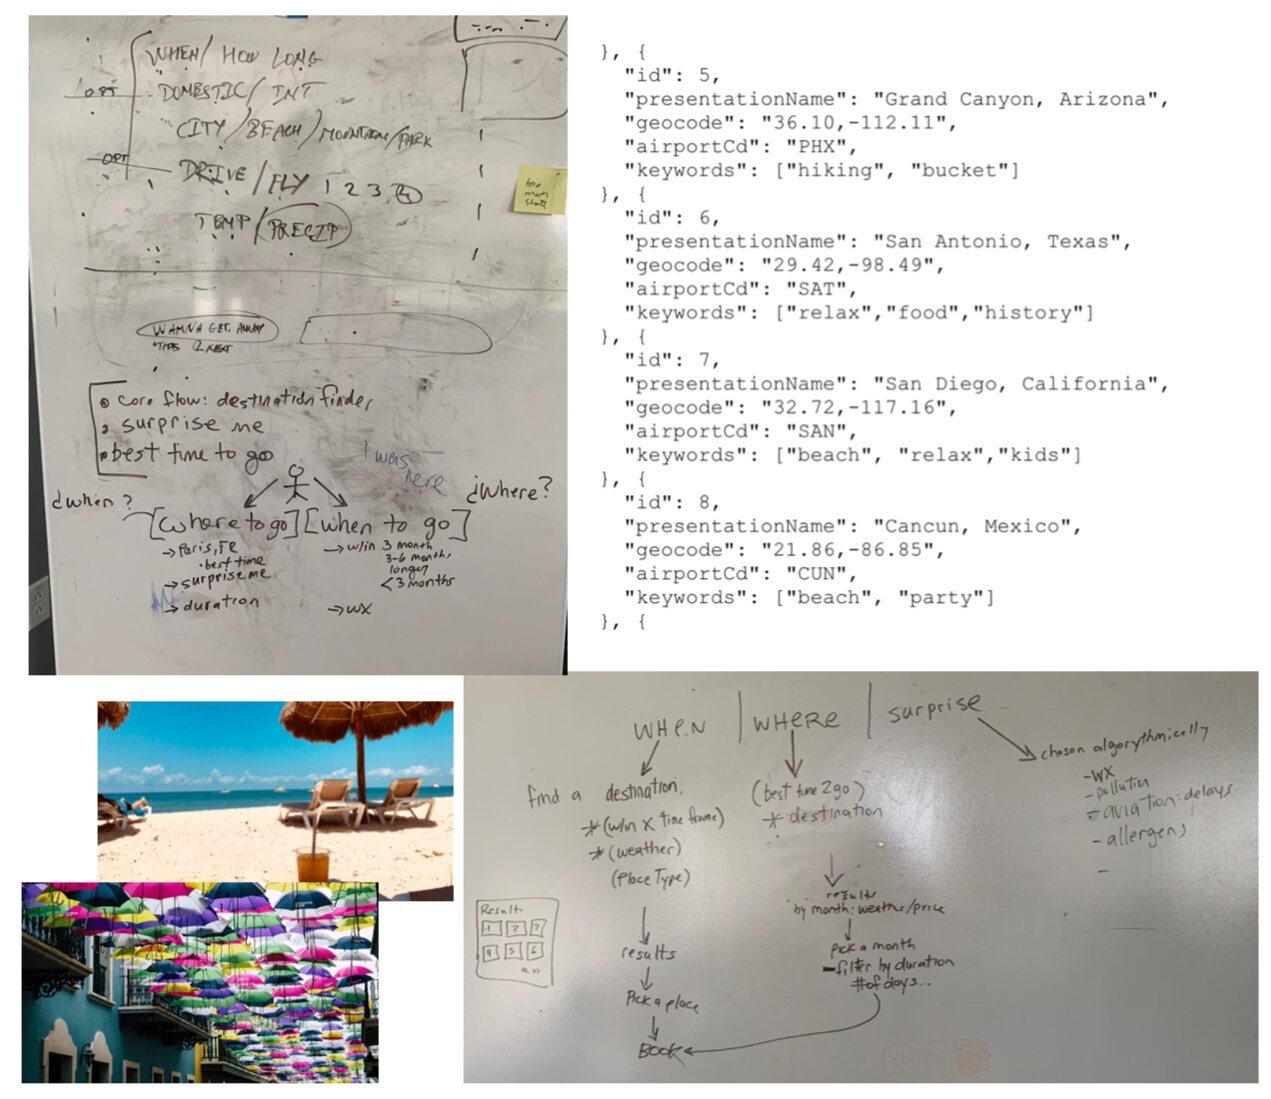 WHEN/ HOW LONG
OPT
DOMESTIC/ INT
CITY/BEACH/MOUNTAIN/PARK
OPT
DRIVE/FLY 1 2 3 4
TEMP/PRECIP
too
much
stuff
WANNA GET AWAY
core flow: destination finder
surprise me
best time to go
I was
here
¿when?
¿Where?
[where to go] [when to go]
→Paris, FR
·best time
→surprise me
→duration
→w/in 3 month
3-6 months
longer
<3 months
→wx
}, {
"id": 5,
"presentationName": "Grand Canyon, Arizona",
"geocode": "36.10,-112.11",
"airportCd": "PHX",
"keywords": ["hiking", "bucket"]
}, {
"id": 6,
"presentationName": "San Antonio, Texas",
"geocode": "29.42,-98.49",
"airportCd": "SAT",
"keywords": ["relax","food","history"]
}, {
"id": 7,
"presentationName": "San Diego, California",
"geocode": "32.72,-117.16",
"airportCd": "SAN",
"keywords": ["beach", "relax","kids"]
}, {
"id": 8,
"presentationName": "Cancun, Mexico",
"geocode": "21.86,-86.85",
"airportCd": "CUN",
"keywords": ["beach", "party"]
}, {
WHEN | WHERE | surprise
find a destination,
*(w/in X time frame)
*(weather)
(Place Type)
results
Pick a place
BOOK
(best time 2 go)
* destination
results
by month: weather/price
pick a month
-filter by duration
# of days...
chosen algorythmically
-wx
-pollution
-aviation: delays
-allergens
-
Results
1 2 3
4 5 6
<< >>